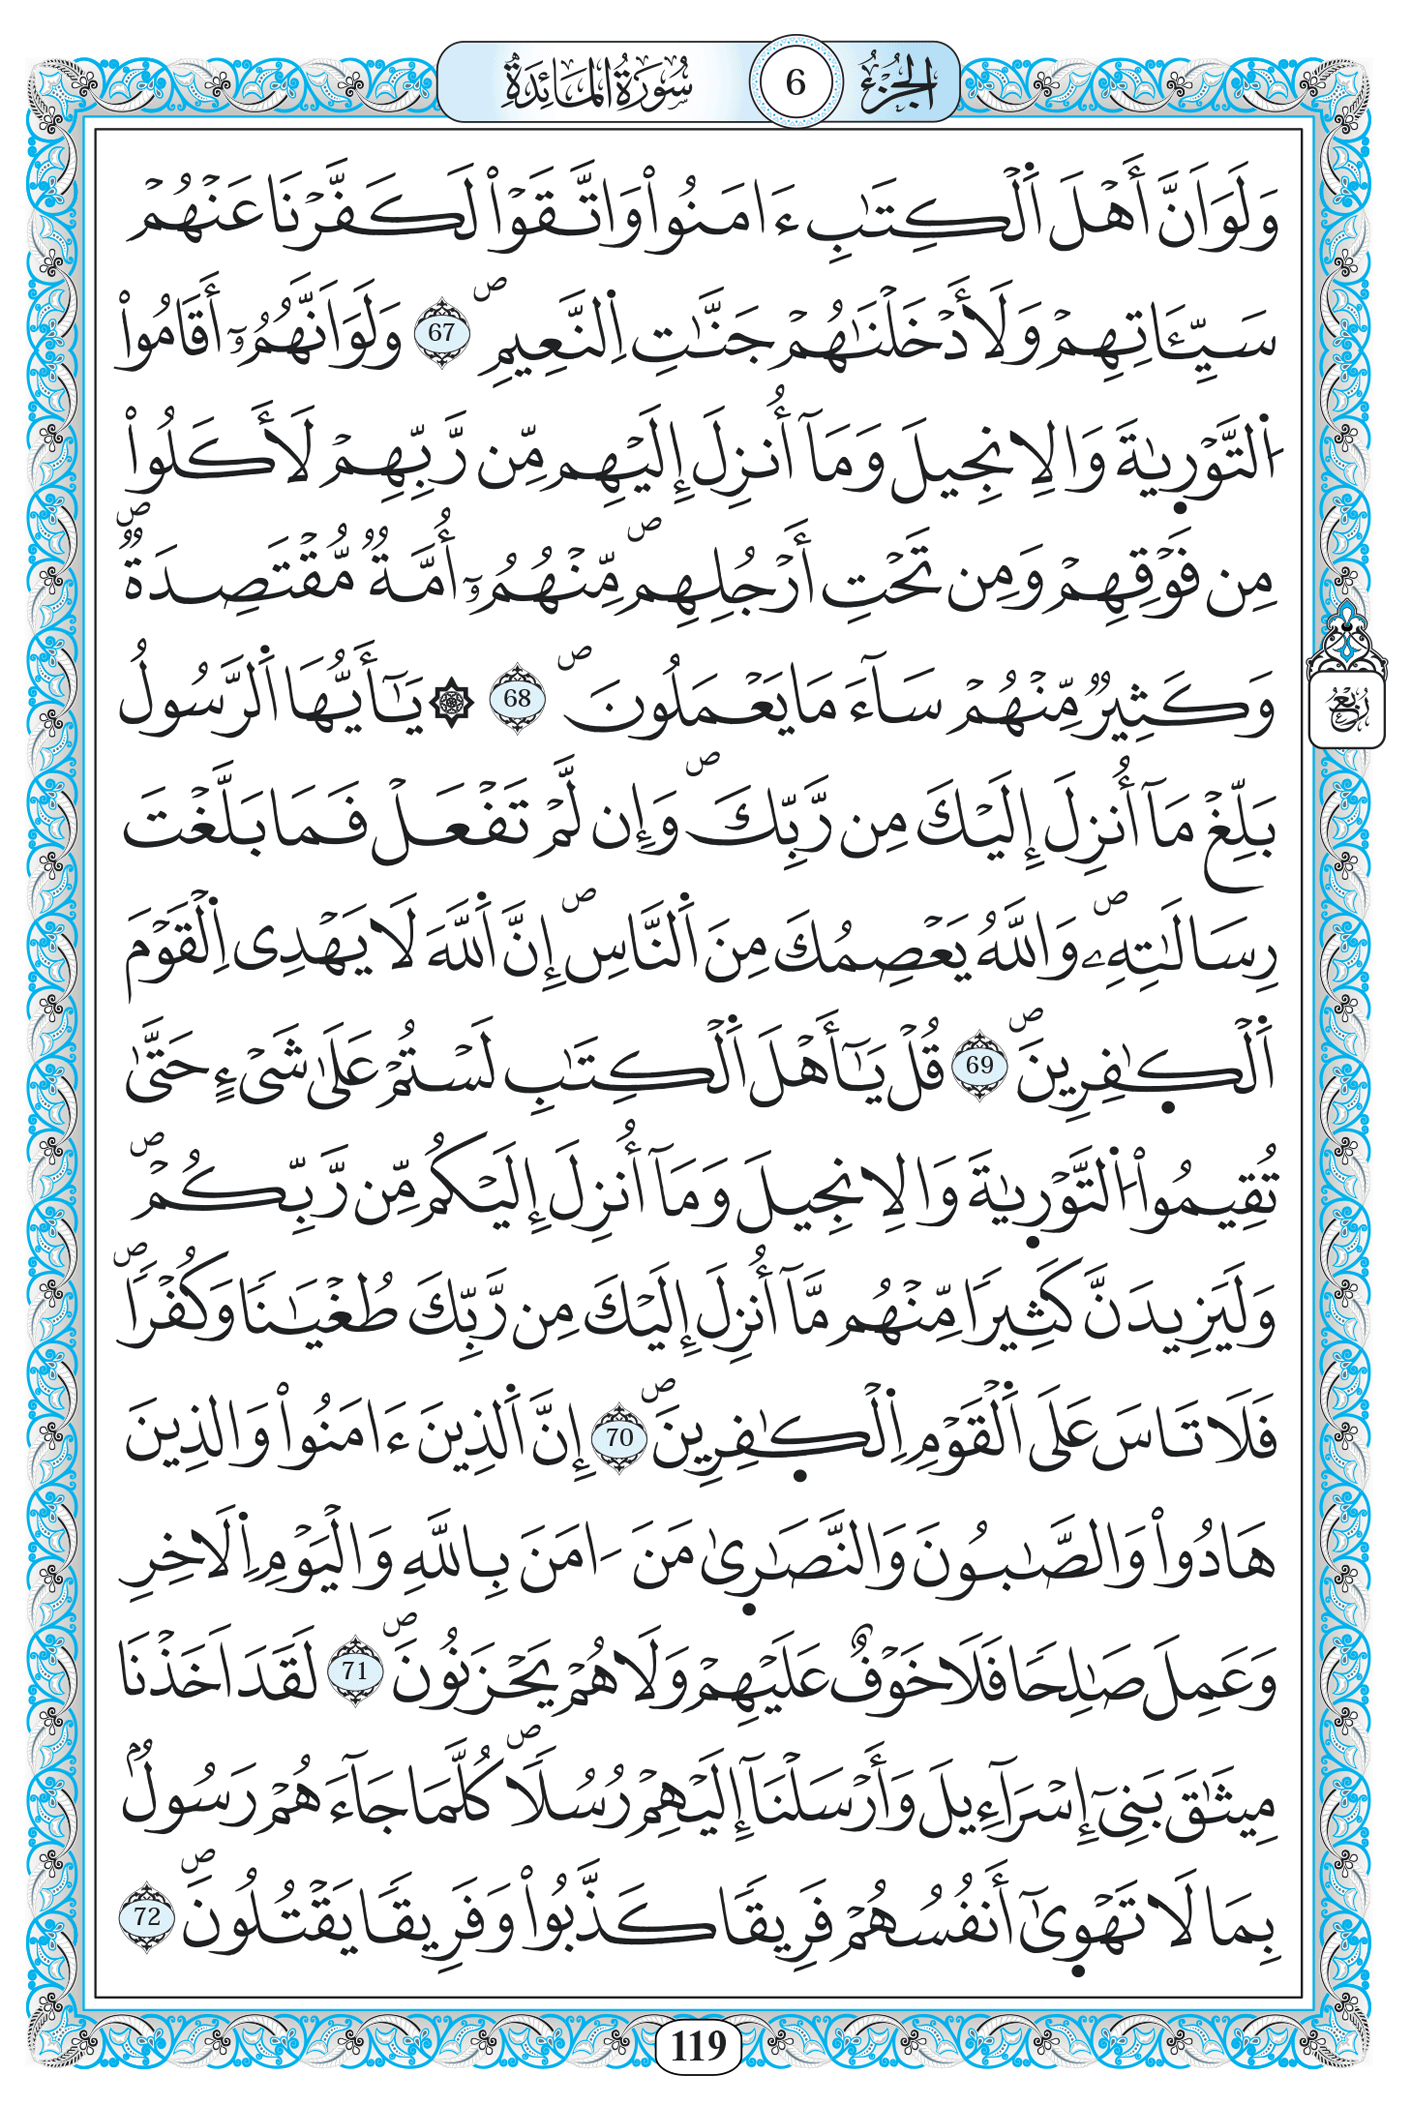 الجزء 6 سورة المائدة
وَلَوَ اَنَّ أَهْلَ اَ۬لْكِتَٰبِ ءَامَنُواْ وَاتَّقَوْاْ لَكَفَّرْنَا عَنْهُمْ
سَيِّـَٔاتِهِمْ وَلَأَدْخَلْنَٰهُمْ جَنَّٰتِ اِ۬لنَّعِيمِۖ 67 وَلَوَ اَنَّهُمُۥٓ أَقَامُواْ
اُ۬لتَّوْر۪ىٰةَ وَالِانجِيلَ وَمَآ أُنزِلَ إِلَيْهِم مِّن رَّبِّهِمْ لَأَكَلُواْ
مِن فَوْقِهِمْ وَمِن تَحْتِ أَرْجُلِهِمۖ مِّنْهُمُۥٓ أُمَّةٞ مُّقْتَصِدَةٞۖ
وَكَثِيرٞ مِّنْهُمْ سَآءَ مَا يَعْمَلُونَۖ 68 ۞ يَٰٓأَيُّهَا اَ۬لرَّسُولُ
ربع
بَلِّغْ مَآ أُنزِلَ إِلَيْكَ مِن رَّبِّكَۖ وَإِن لَّمْ تَفْعَلْ فَمَا بَلَّغْتَ
رِسَالَٰتِهِۦۖ وَاللَّهُ يَعْصِمُكَ مِنَ اَ۬لنَّاسِۖ إِنَّ اَ۬للَّهَ لَا يَهْدِى اِ۬لْقَوْمَ
اَ۬لْكٰ۪فِرِينَۖ 69 قُلْ يَٰٓأَهْلَ اَ۬لْكِتَٰبِ لَسْتُمْ عَلَىٰ شَىْءٍ حَتَّىٰ
تُقِيمُواْ اُ۬لتَّوْر۪ىٰةَ وَالِانجِيلَ وَمَآ أُنزِلَ إِلَيْكُم مِّن رَّبِّكُمْۖ
وَلَيَزِيدَنَّ كَثِيراٗ مِّنْهُم مَّآ أُنزِلَ إِلَيْكَ مِن رَّبِّكَ طُغْيَٰناٗ وَكُفْراٗۖ
فَلَا تَاسَ عَلَى اَ۬لْقَوْمِ اِ۬لْكٰ۪فِرِينَۖ 70 إِنَّ اَ۬لذِينَ ءَامَنُواْ وَالذِينَ
هَادُواْ وَالصَّٰبُونَ وَالنَّصَٰر۪ىٰ مَنَ اٰمَنَ بِاللَّهِ وَالْيَوْمِ اِ۬لَاخِرِ
وَعَمِلَ صَٰلِحاٗ فَلَا خَوْفٌ عَلَيْهِمْ وَلَا هُمْ يَحْزَنُونَۖ 71 لَقَدَ اَخَذْنَا
مِيثَٰقَ بَنِىٓ إِسْرَآءِيلَ وَأَرْسَلْنَآ إِلَيْهِمْ رُسُلاٗۖ كُلَّمَا جَآءَهُمْ رَسُولُۢ
بِمَا لَا تَهْو۪ىٰٓ أَنفُسُهُمْ فَرِيقاٗ كَذَّبُواْ وَفَرِيقاٗ يَقْتُلُونَۖ 72
119